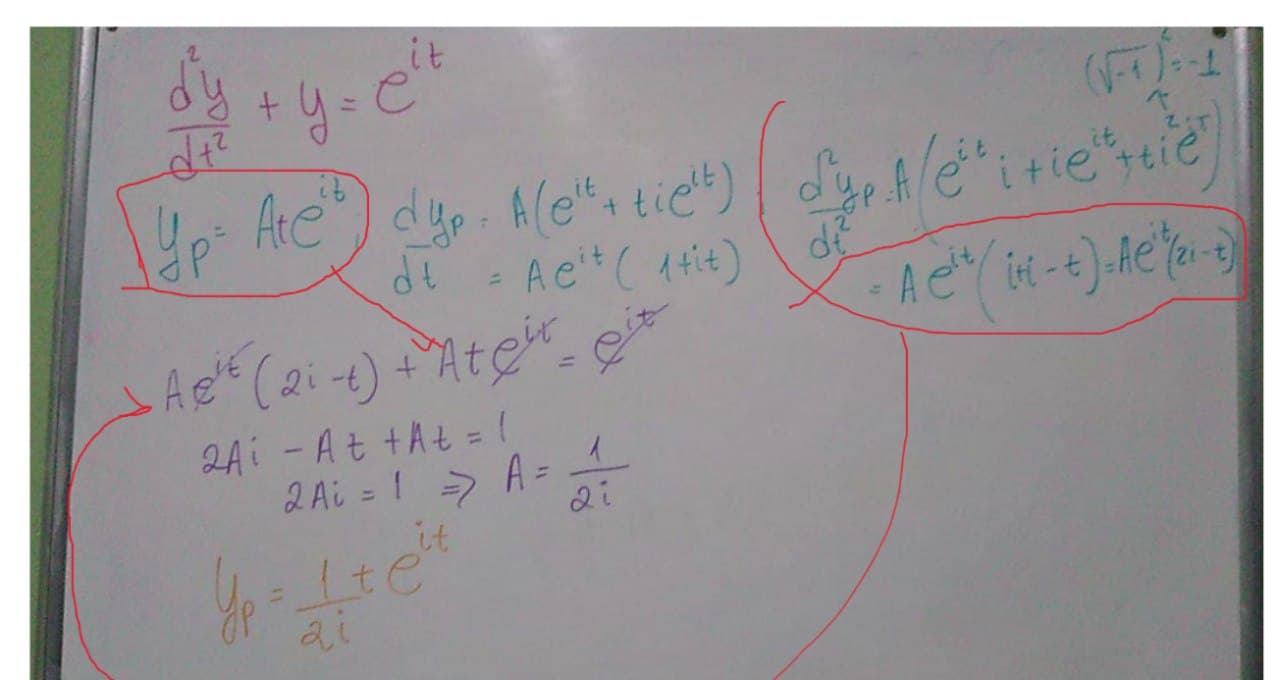 d²y/dt² + y = e^{it}
(√-1)² = -1
y_p = Ate^{it} ;
dy_p/dt = A(e^{it} + tie^{it})
= Ae^{it}(1+it)
d²y_p/dt² = A(e^{it}i + ie^{it} + ti²e^{it})
= Ae^{it}(i+i-t) = Ae^{it}(2i-t)
Ae^{it}(2i-t) + Ate^{it} = e^{it}
2Ai - At + At = 1
2Ai = 1 ⇒ A = 1/2i
y_p = 1/2i te^{it}